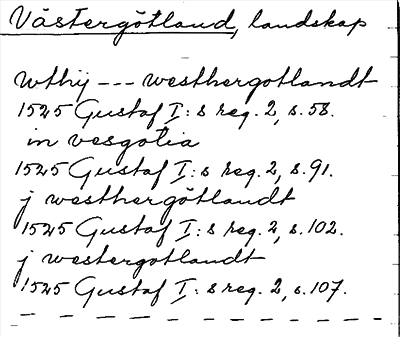 Västergötland, landskap
wthij --- westhergotlandt
1525 Gustaf I:s reg. 2, s. 58.
in vesgotia
1525 Gustaf I:s reg. 2, s. 91.
j westhergötlandt
1525 Gustaf I:s reg. 2, s. 102.
j westergotlandt
1525 Gustaf I:s reg. 2, s. 107.